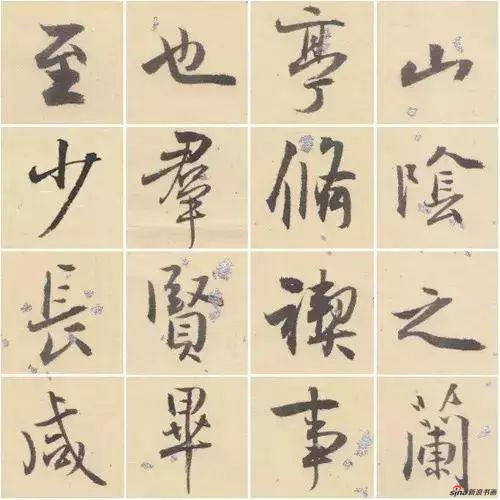 山陰之蘭
亭脩禊事
也羣賢畢
至少長咸
sina新浪书画